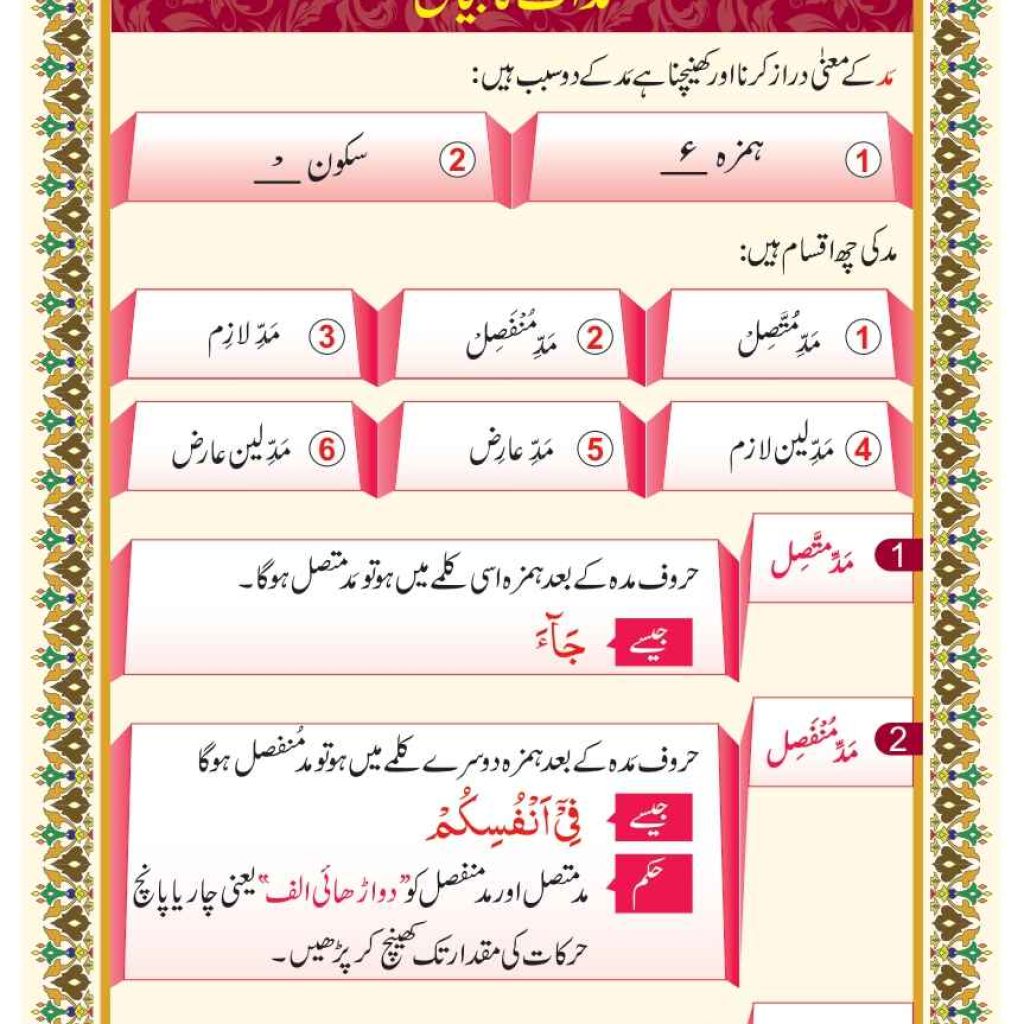 مَد کے معنیٰ دراز کرنا اور کھینچنا ہے مَد کے دو سبب ہیں:
1 ہمزہ ء 2 سکون ـْـ
مد کی چھ اقسام ہیں:
1 مَدِّ مُتَّصِلْ 2 مَدِّ مُنْفَصِلْ 3 مَدِّ لازِم
4 مَدِّ لین لازم 5 مَدِّ عارِض 6 مَدِّ لین عارض
1 مَدِّ متَّصِل
حروف مدہ کے بعد ہمزہ اسی کلمے میں ہو تو مَد متصل ہوگا۔
جیسے جَآءَ
2 مَدِّ مُنْفَصِل
حروف مَدہ کے بعد ہمزہ دوسرے کلمے میں ہو تو مد مُنفصل ہوگا
جیسے فِیْۤ اَنْفُسِكُمْ
حکم مد متصل اور مد منفصل کو "دو اڑھائی الف" یعنی چار یا پانچ
حرکات کی مقدار تک کھینچ کر پڑھیں۔